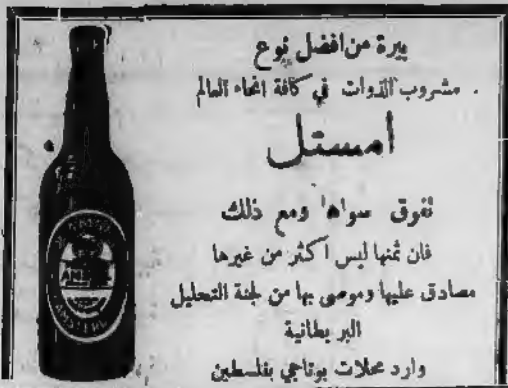 بيرة من افضل نوع
مشروب الذوات في كافة انحاء العالم
امستل
تفوق سواها ومع ذلك
فان ثمنها ليس اكثر من غيرها
مصادق عليها وموصى بها من لجنة التحليل
البريطانية
وارد محلات بوتاجي بفلسطين
AMSTERD